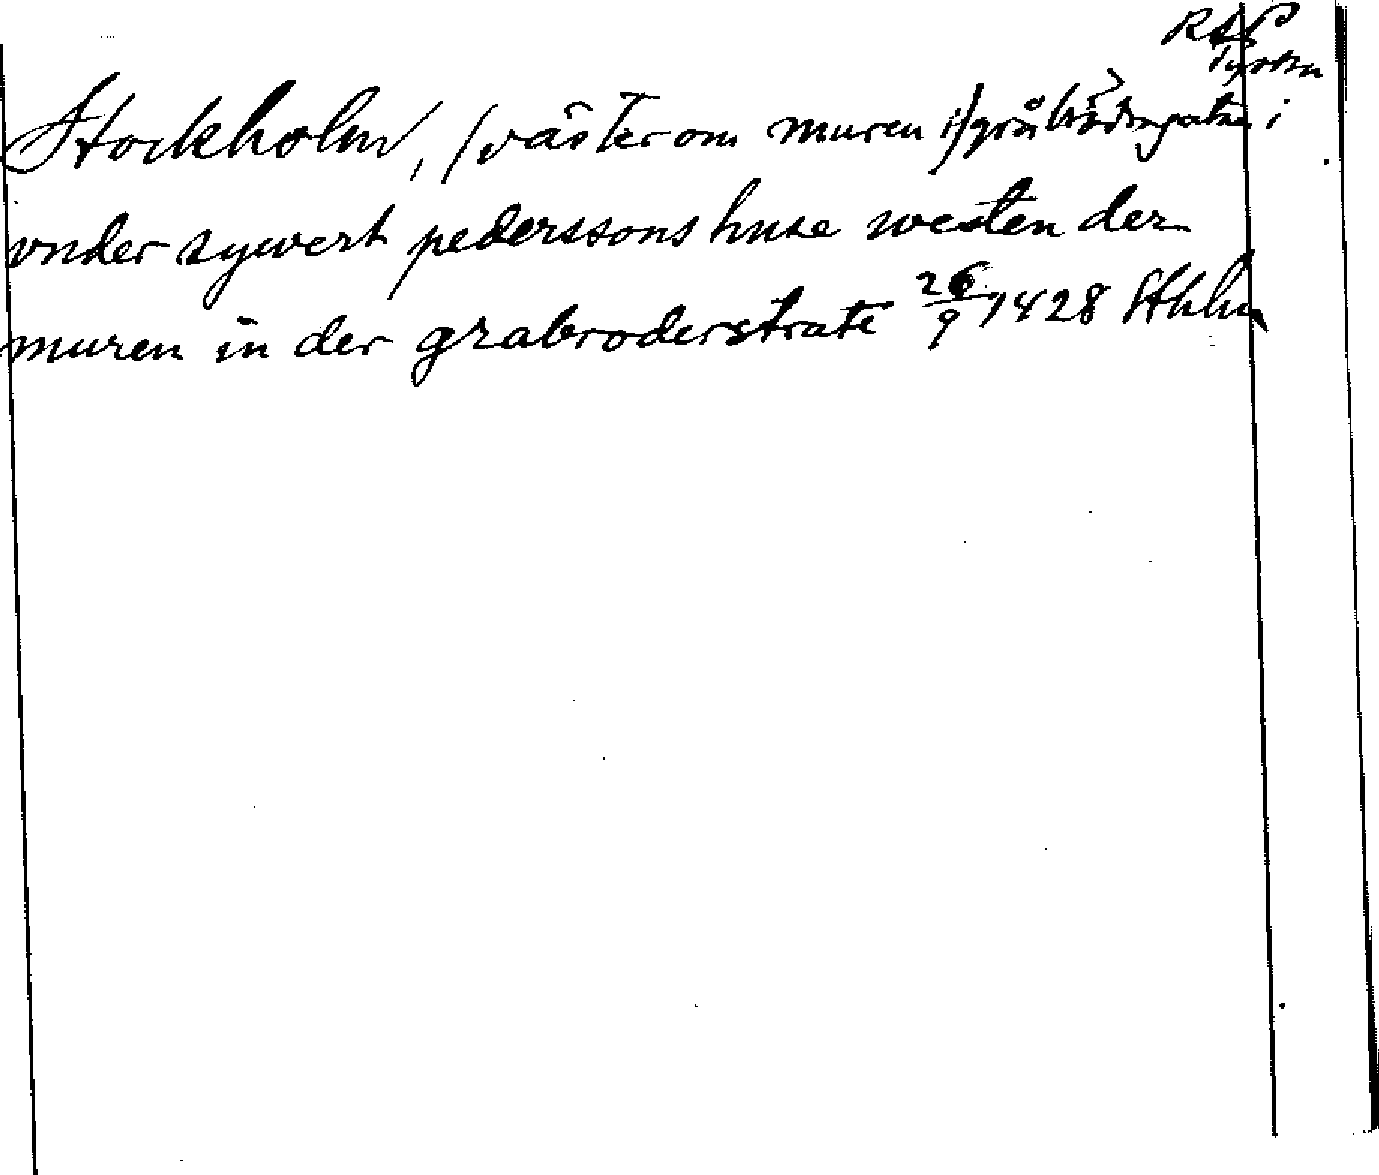 RAP
Tyska
Stockholm, (väster om muren i) gråbrödragatan i
vnder sywert pederssons huse westen der
muren in der grabroderstrate 26/9 1428 Sthlm